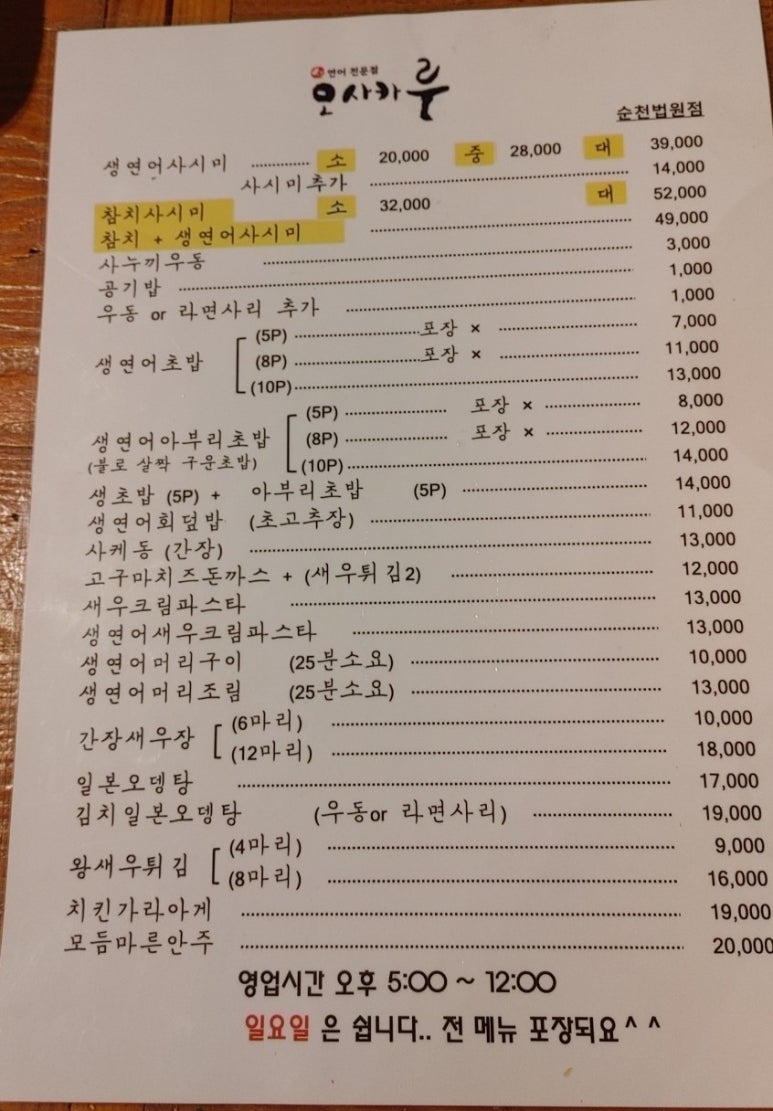 연어 전문점
오사카루
순천법원점
생연어사시미 ............ 소 20,000 중 28,000 대 39,000
사시미추가 ............ 14,000
참치사시미 소 32,000 대 52,000
참치 + 생연어사시미 ............ 49,000
사누끼우동 ............ 3,000
공기밥 ............ 1,000
우동 or 라면사리 추가 ............ 1,000
생연어초밥
(5P) ............ 포장 × ............ 7,000
(8P) ............ 포장 × ............ 11,000
(10P) ............ 13,000
생연어아부리초밥
(불로 살짝 구운초밥)
(5P) ............ 포장 × ............ 8,000
(8P) ............ 포장 × ............ 12,000
(10P) ............ 14,000
생초밥 (5P) + 아부리초밥 (5P) ............ 14,000
생연어회덮밥 (초고추장) ............ 11,000
사케동 (간장) ............ 13,000
고구마치즈돈까스 + (새우튀김2) ............ 12,000
새우크림파스타 ............ 13,000
생연어새우크림파스타 ............ 13,000
생연어머리구이 (25분소요) ............ 10,000
생연어머리조림 (25분소요) ............ 13,000
간장새우장
(6마리) ............ 10,000
(12마리) ............ 18,000
일본오뎅탕 ............ 17,000
김치일본오뎅탕 (우동or 라면사리) ............ 19,000
왕새우튀김
(4마리) ............ 9,000
(8마리) ............ 16,000
치킨가라아게 ............ 19,000
모듬마른안주 ............ 20,000
영업시간 오후 5:00 ~ 12:00
일요일 은 쉽니다.. 전 메뉴 포장되요^^